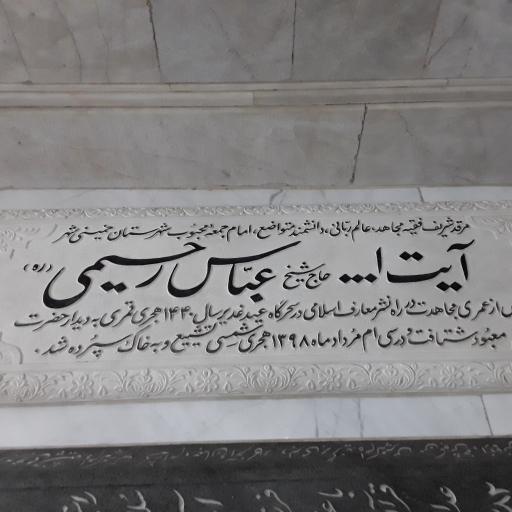 مرقد شریف فقیه مجاهد، عالم ربانی، دانشمند متواضع، امام جمعه محبوب شهرستان خمینی شهر
آیت ا... حاج شیخ عباس رحیمی (ره)
از عمری مجاهدت در راه نشر معارف اسلامی در سحرگاه عید غدیر سال ۱۴۴۰ هجری قمری به دیدار حضرت
معبود شتافت و در سی ام مرداد ماه ۱۳۹۸ هجری شمسی تشییع و به خاک سپرده شد.